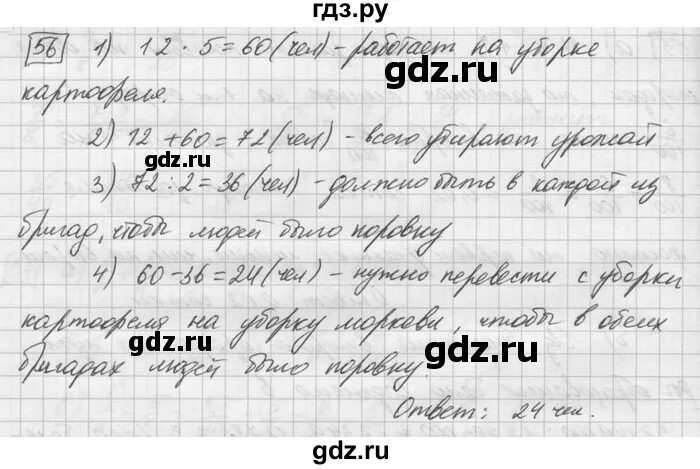 гдз.ру
56 1) 12 · 5 = 60 (чел) - работает на уборке
картофеля.
2) 12 + 60 = 72 (чел) - всего убирают урожай
gdz.ru
gdz.ru
3) 72 : 2 = 36 (чел) - должно быть в каждой из
бригад, чтобы людей было поровну
gdz.ru
gdz.ru
4) 60 - 36 = 24 (чел) - нужно перевести с уборки
картофеля на уборку моркови, чтобы в обеих
gdz.ru
gdz.ru
бригадах людей было поровну.
Ответ: 24 чел.
gdz.ru